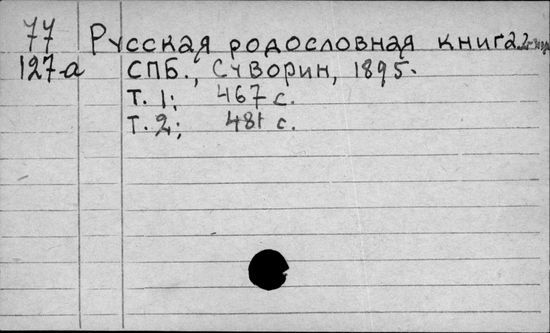 77 Русская родословная книга. 2-е изд.
127-а СПБ., Суворин, 1895.
Т. 1: 467 с.
Т. 2: 481 с.